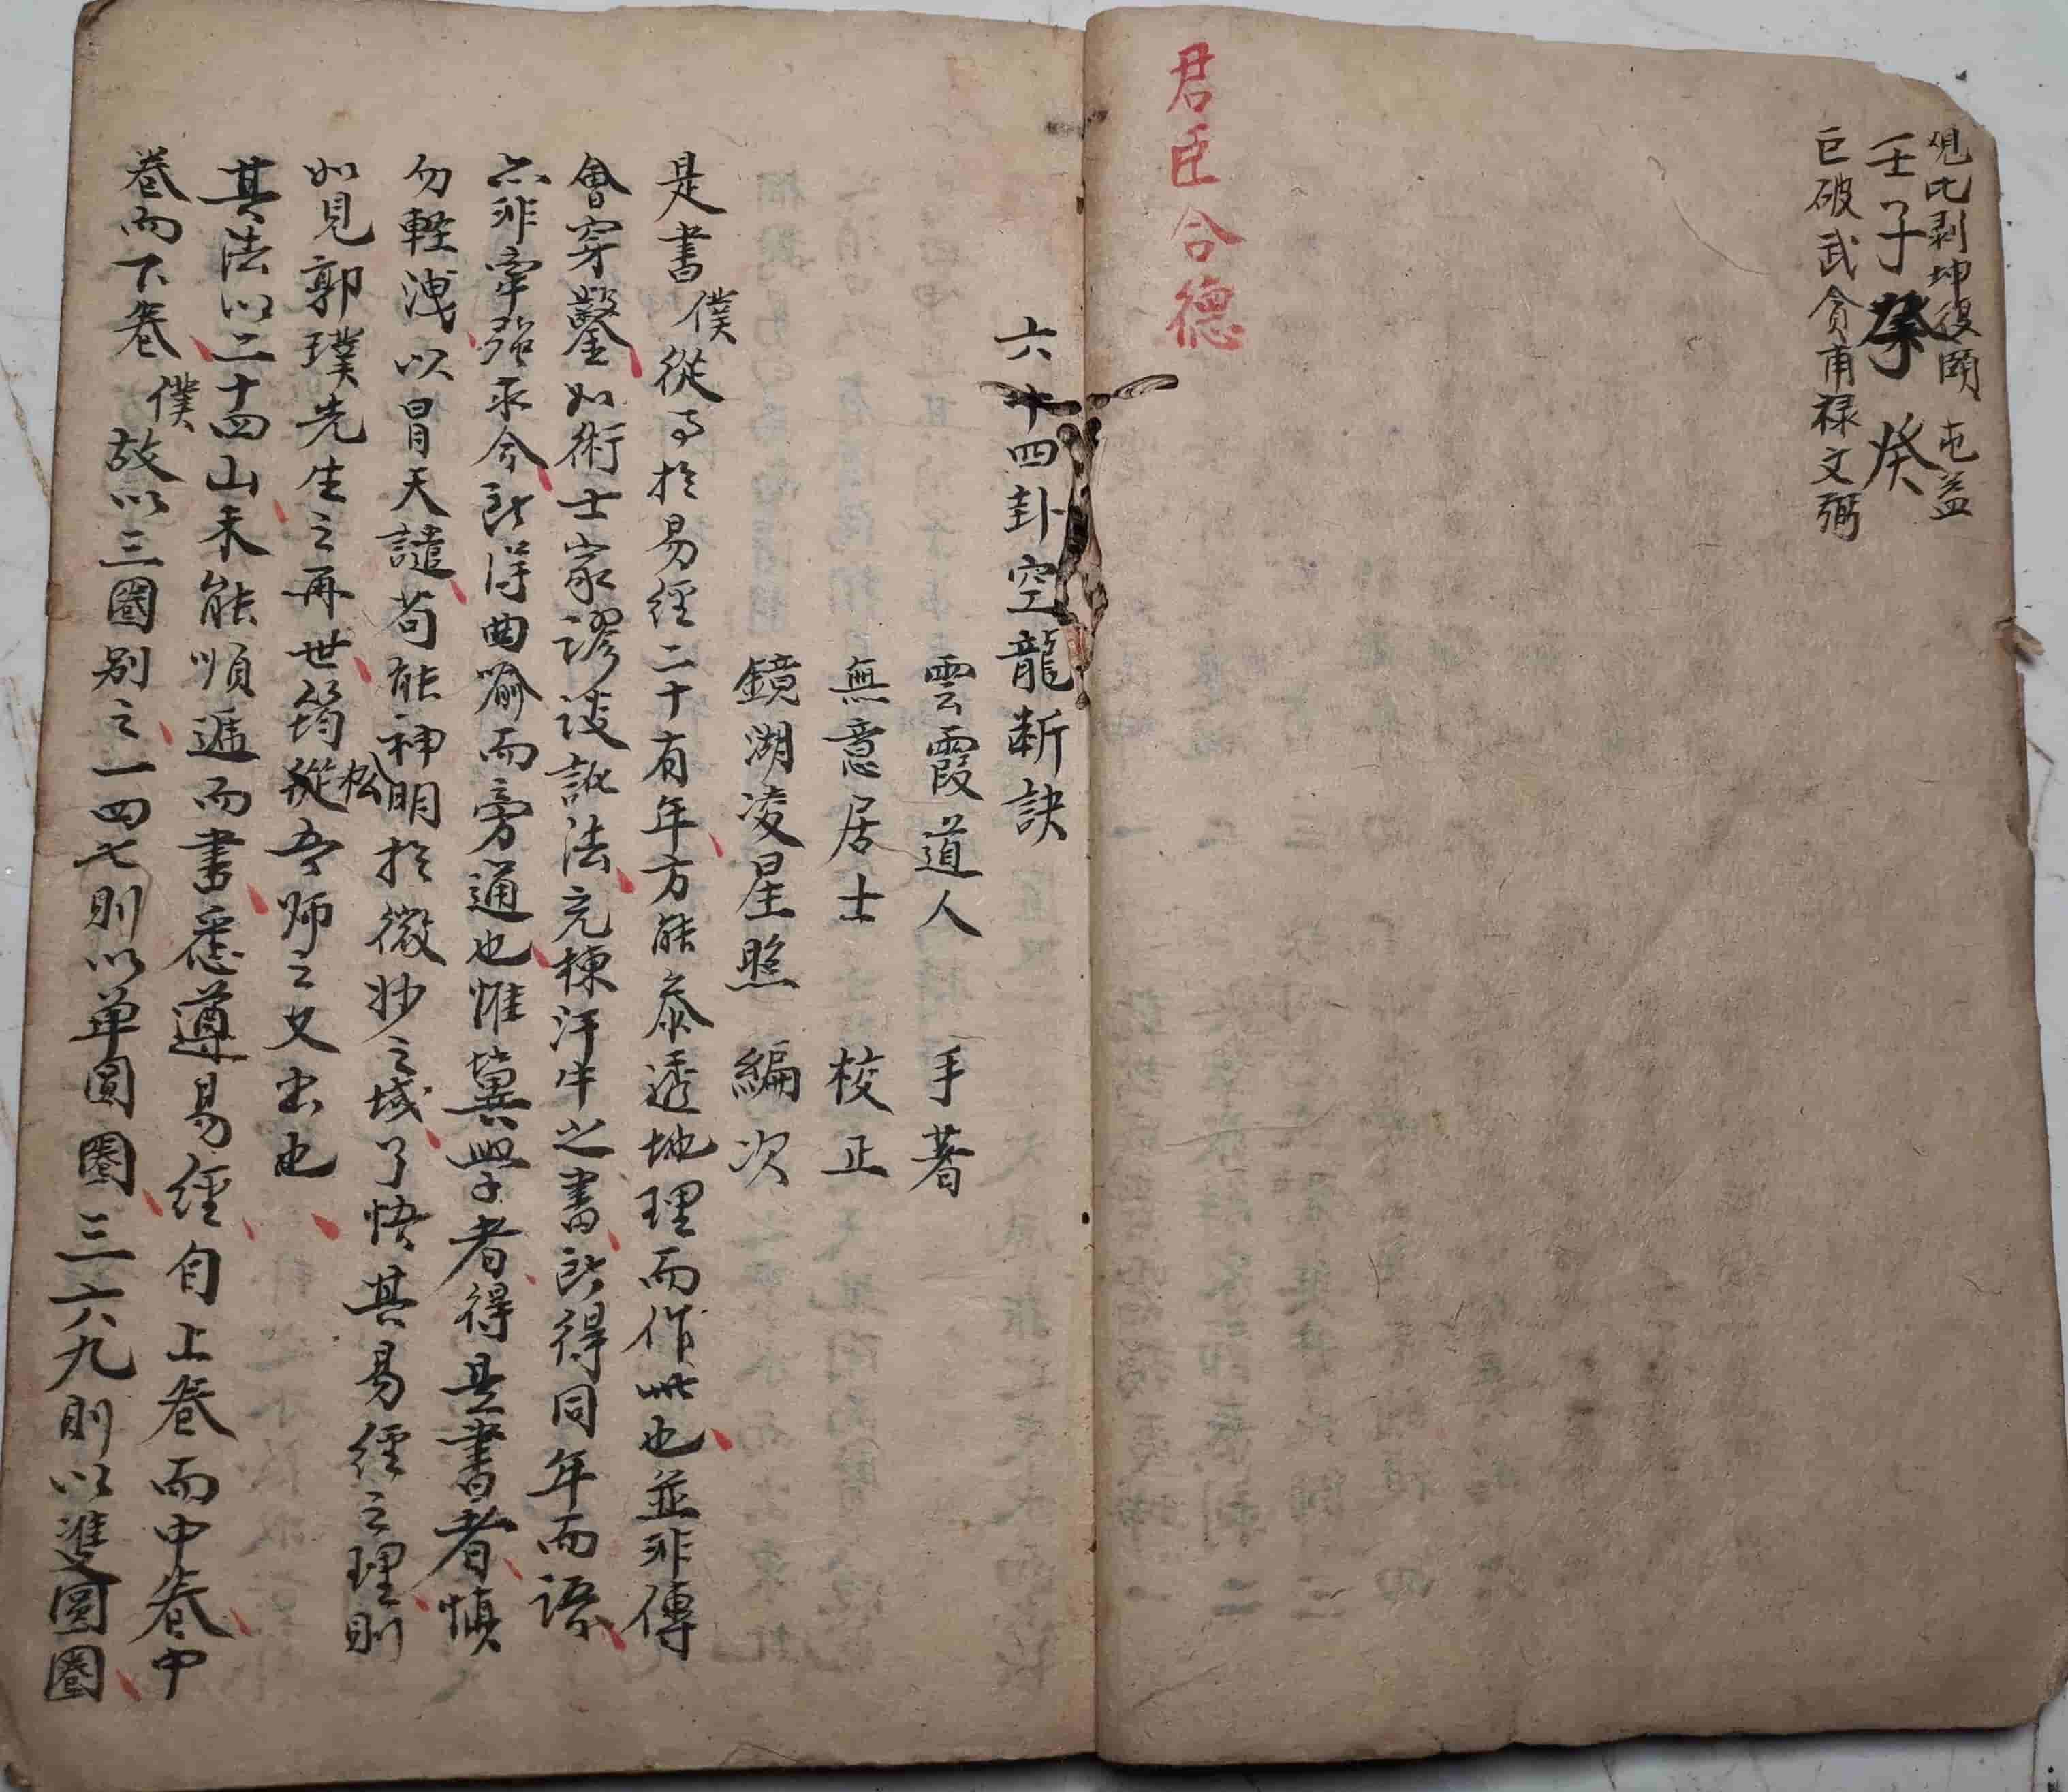 觀比剥坤復頤屯益
壬子癸癸
巨破武貪甫禄文弼
君臣合德
六十四卦空龍斷訣
雲霞道人　手著
無意居士　校正
鏡湖凌星照　編次
是書僕從事於易經二十有年方能泰透地理而作此也並非傳
會穿鑿如術士家謬談訛法充棟汗牛之書所得同年而語
亦非牽强求今所得曲喻而旁通也惟冀學者得是書者慎
勿輕洩以冒天譴苟能神明於微妙之域了悟其易經之理則
如見郭璞先生之再世筠松從吾师之又出也
其法以二十四山未能順遞而書悉遵易經自上卷而中卷中
卷而下卷僕故以三圈别之一四七則以单圓圈三六九則以雙圓圈